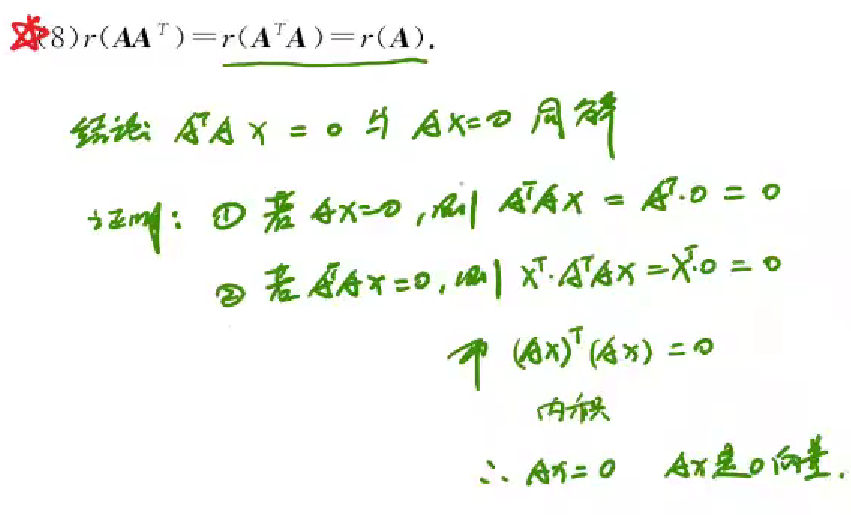 (8) r(AAᵀ)=r(AᵀA)=r(A).
结论: AᵀAx = 0 与 Ax=0 同解
证明: ① 若 Ax=0, 则 AᵀAx = Aᵀ·0 = 0
② 若 AᵀAx=0, 则 xᵀ·AᵀAx=xᵀ·0 = 0
即 (Ax)ᵀ(Ax) = 0
内积
∴ Ax=0 Ax是0向量.